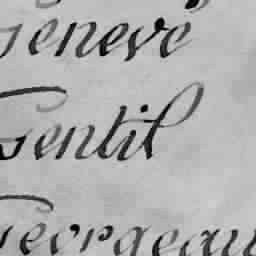 Genevé
Gentil
Georgeau